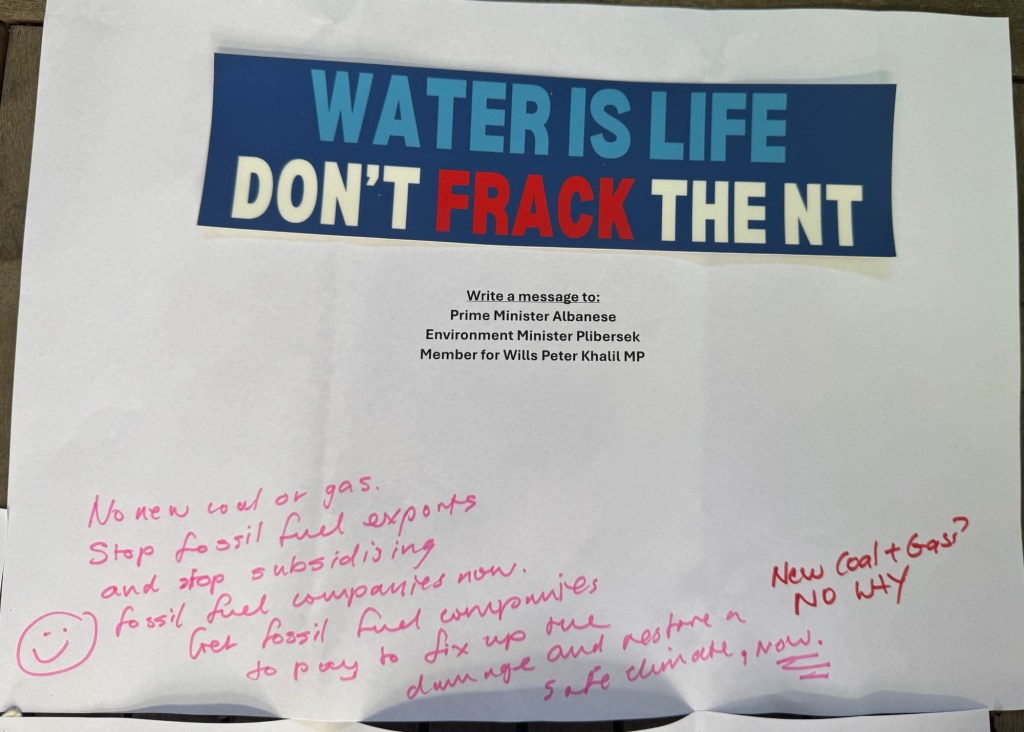 WATER IS LIFE
DON'T FRACK THE NT
Write a message to:
Prime Minister Albanese
Environment Minister Plibersek
Member for Wills Peter Khalil MP
No new coal or gas.
Stop fossil fuel exports
and stop subsidising
fossil fuel companies now.
Get fossil fuel companies
to pay to fix up the
damage and restore a
safe climate, now.
New Coal + Gas?
NO WAY